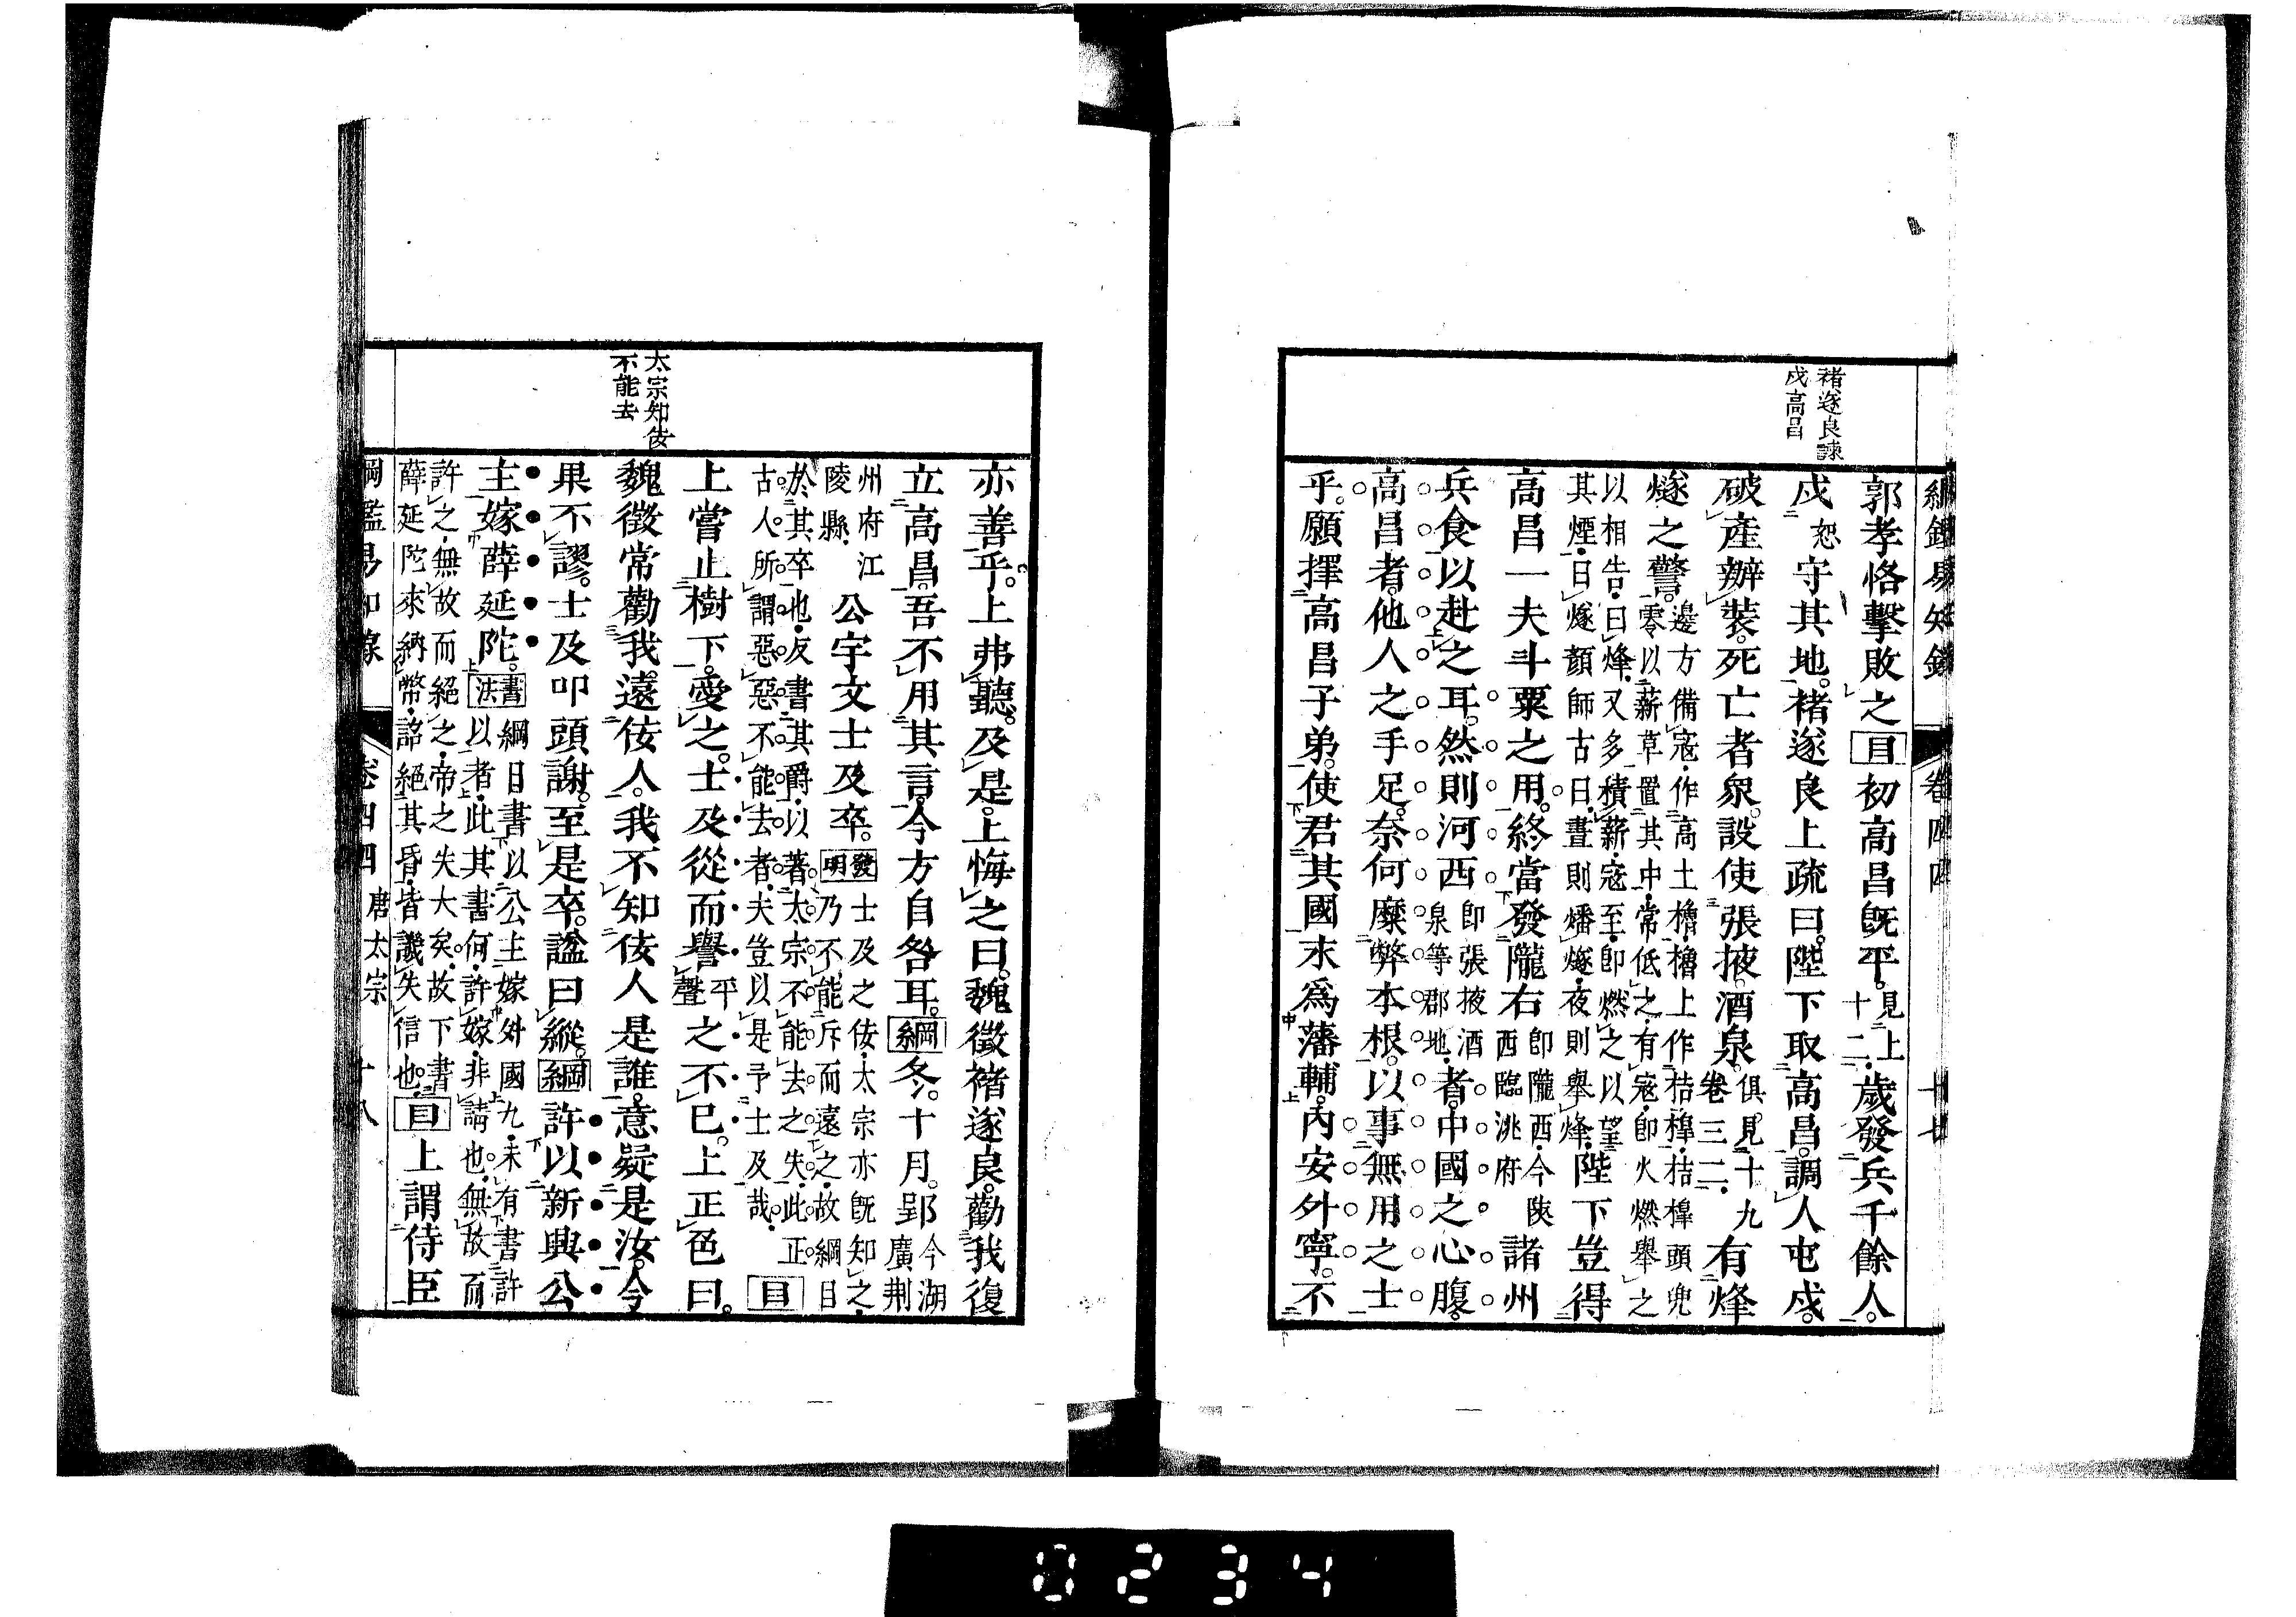 綱鑑易知錄　卷四四
褚遂良諫
戍高昌
郭孝恪擊敗之目初高昌既平見上十二歲發兵千餘人
戍恕守其地褚遂良上疏曰陛下取高昌調人屯戍
破產辦裝死亡者衆設使張掖酒泉俱見十九卷三二有烽
燧之警邊方備寇作高土櫓櫓上作桔槹桔槹頭兜零以薪草置其中常低之有寇即火燃舉之
以相告曰烽又多積薪寇至即燃之以望其煙曰燧顏師古曰晝則燔燧夜則舉烽陛下豈得
高昌一夫斗粟之用終當發隴右即隴西今陝西臨洮府諸州
兵食以赴之耳然則河西即張掖酒泉等郡地者中國之心腹
高昌者他人之手足奈何糜弊本根以事無用之士
乎願擇高昌子弟使君其國永爲藩輔內安外寧不
亦善乎上弗聽及是上悔之曰魏徵褚遂良勸我復
立高昌吾不用其言今方自咎耳綱冬十月郢今湖廣荆
州府江陵縣公宇文士及卒發明士及之佞太宗亦既知之乃不能斥而遠之故綱目
於其卒也友書其爵以著太宗不能去之失此正古人所謂惡惡不能去者夫豈以是予士及哉目
上嘗止樹下愛之士及從而譽平聲之不已上正色曰
魏徵常勸我遠佞人我不知佞人是誰意疑是汝今
果不謬士及叩頭謝至是卒諡曰縱綱許以新興公
主嫁薛延陀書法綱目書以公主嫁外國九未有書許以者此其書何許嫁非請也無故而
許之無故而絕之帝之失大矣故下書薛延陀來納幣詔絕其昏皆譏失信也目上謂侍臣
太宗知佞
不能去
綱鑑易知錄　卷四四　唐太宗　十八